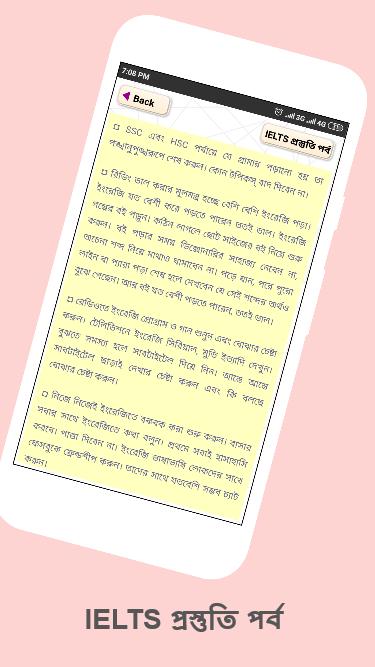 7:08 PM
3G 4G
Back
IELTS প্রস্তুতি পর্ব
¤ SSC এবং HSC পর্যায়ে যে গ্রামার পড়ানো হয় তা
পুঙ্খানুপুঙ্খরূপে শেষ করুন। কোন টপিকস্ বাদ দিবেন না।
¤ রিডিং ভাল করার মূলমন্ত্র হচ্ছে বেশি বেশি ইংরেজি পড়া।
ইংরেজি যত বেশী করে পড়তে পারেন ততই ভাল। ইংরেজি
গল্পের বই পড়ুন। কঠিন লাগলে ছোট সাইজের বই দিয়ে শুরু
করুন। বই পড়ার সময় ডিক্সোনারির সাহায্য নেবেন না,
অচেনা শব্দ নিয়ে মাথাও ঘামাবেন না। পড়ে যান, পরে পুরো
লাইন বা প্যারা পড়া শেষ হলে দেখবেন যে সেই শব্দের অর্থও
বুঝে গেছেন। আর বই যত বেশী পড়তে পারেন, ততই ভাল।
¤ রেডিওতে ইংরেজি প্রোগ্রাম ও গান শুনুন এবং বোঝার চেষ্টা
করুন। টেলিভিশনে ইংরেজি সিরিয়াল, মুভি ইত্যাদি দেখুন।
বুঝতে সমস্যা হলে সাবটাইটেল দিয়ে নিন। আস্তে আস্তে
সাবটাইটেল ছাড়াই দেখার চেষ্টা করুন এবং কি বলছে
বোঝার চেষ্টা করুন।
¤ নিজে নিজেই ইংরেজিতে বকবক করা শুরু করুন। বাসার
সবার সাথে ইংরেজিতে কথা বলুন। প্রথমে সবাই হাসাহাসি
করবে। পাত্তা দিবেন না। ইংরেজি ভাষাভাষি লোকদের সাথে
ফেসবুকে ফ্রেন্ডশীপ করুন। তাদের সাথে যতবেশি সম্ভব চ্যাট
করুন।
IELTS প্রস্তুতি পর্ব